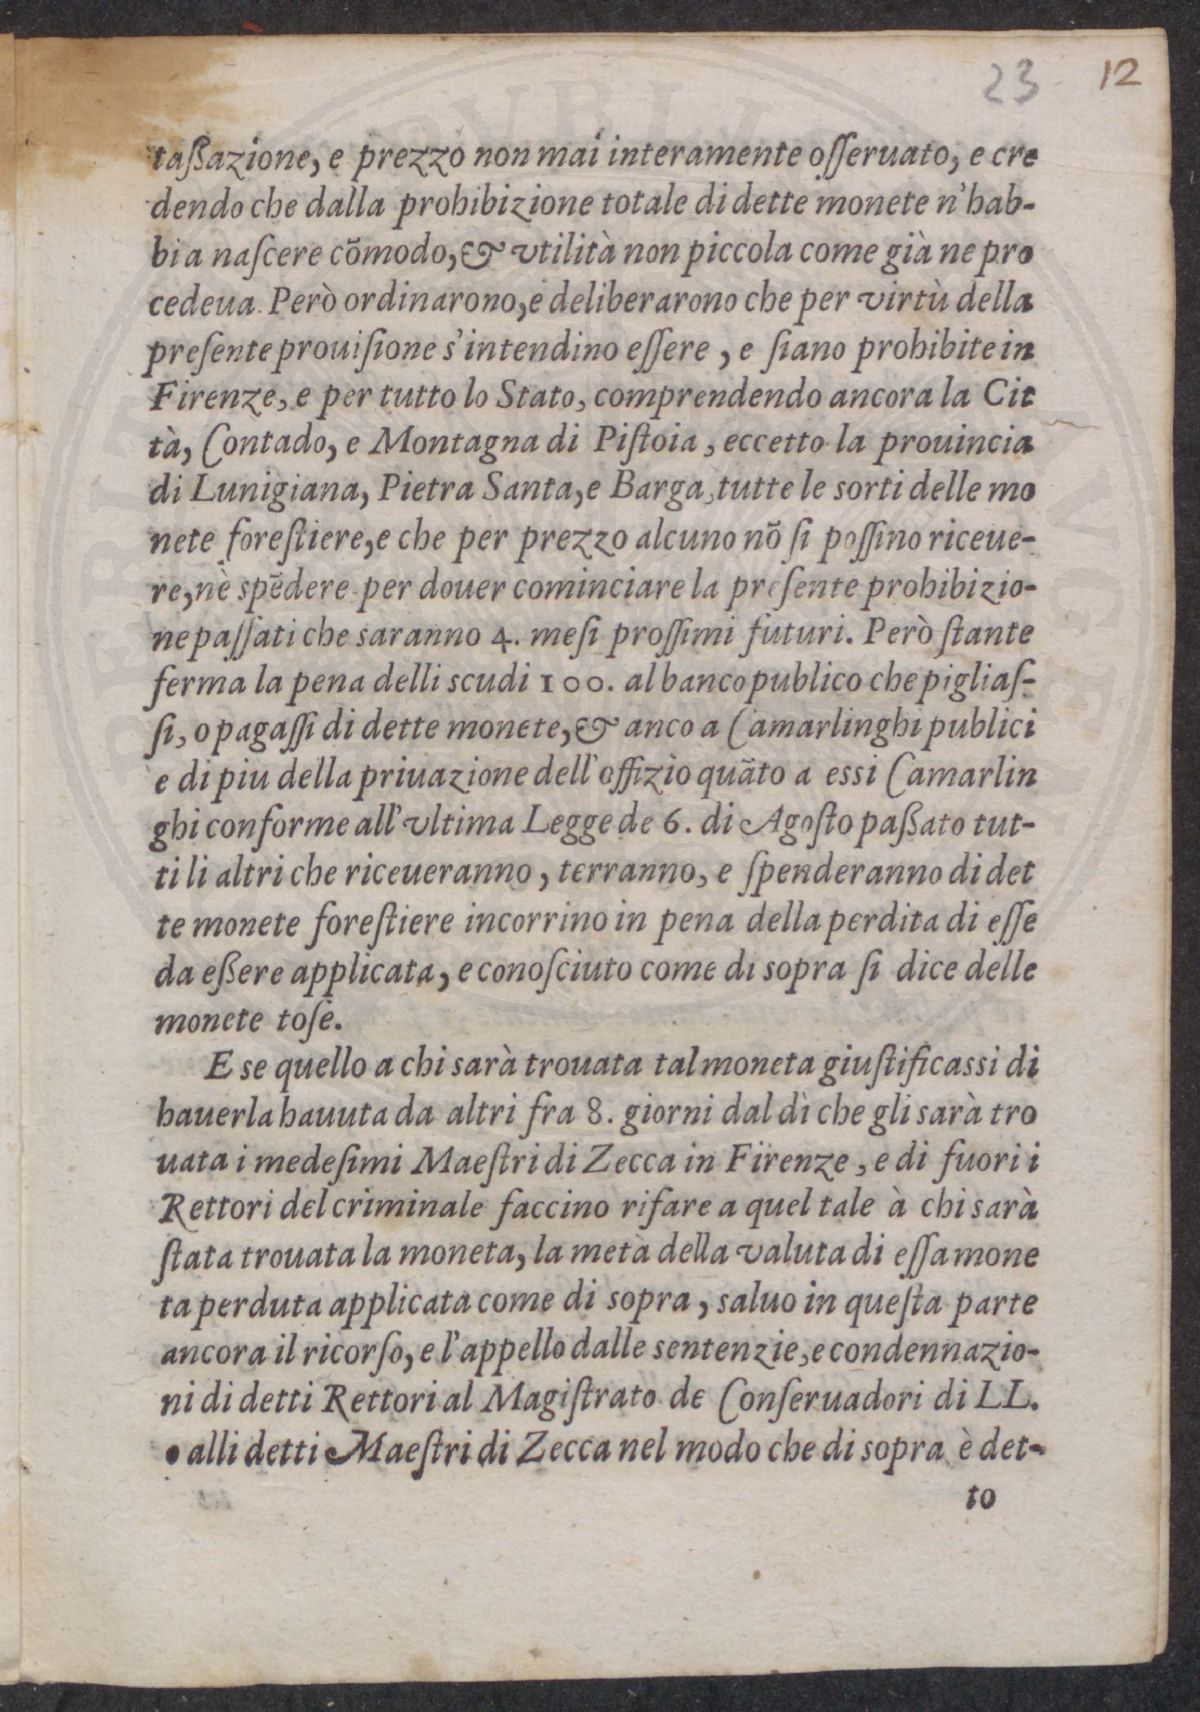 23 12
taßazione, e prezzo non mai interamente osseruato, e cre
dendo che dalla prohibizione totale di dette monete n'hab-
bia nascere cõmodo, & vtilità non piccola come già ne pro
cedeua. Però ordinarono, e deliberarono che per virtù della
presente prouisione s'intendino essere, e siano prohibite in
Firenze, e per tutto lo Stato, comprendendo ancora la Cit
tà, Contado, e Montagna di Pistoia, eccetto la prouincia
di Lunigiana, Pietra Santa, e Barga, tutte le sorti delle mo
nete forestiere, e che per prezzo alcuno nõ si possino riceue-
re, nè spẽdere per douer cominciare la presente prohibizio-
ne passati che saranno 4. mesi prossimi futuri. Però stante
ferma la pena delli scudi 100. al banco publico che pigliaſ-
si, o pagassi di dette monete, & anco a Camarlinghi publici
e di piu della priuazione dell'offizio quãto a essi Camarlin
ghi conforme all'vltima Legge de 6. di Agosto paßato tut-
ti li altri che riceueranno, terranno, e spenderanno di det
te monete forestiere incorrino in pena della perdita di esse
da eßere applicata, e conosciuto come di sopra si dice delle
monete tose.
E se quello a chi sarà trouata tal moneta giustificassi di
hauerla hauuta da altri fra 8. giorni dal dì che gli sarà tro
uata i medesimi Maestri di Zecca in Firenze, e di fuori i
Rettori del criminale faccino rifare a quel tale à chi sarà
stata trouata la moneta, la metà della valuta di essa mone
ta perduta applicata come di sopra, saluo in questa parte
ancora il ricorso, e l'appello dalle sentenzie, e condennazio-
ni di detti Rettori al Magistrato de Conseruadori di LL.
o alli detti Maestri di Zecca nel modo che di sopra è det-
to